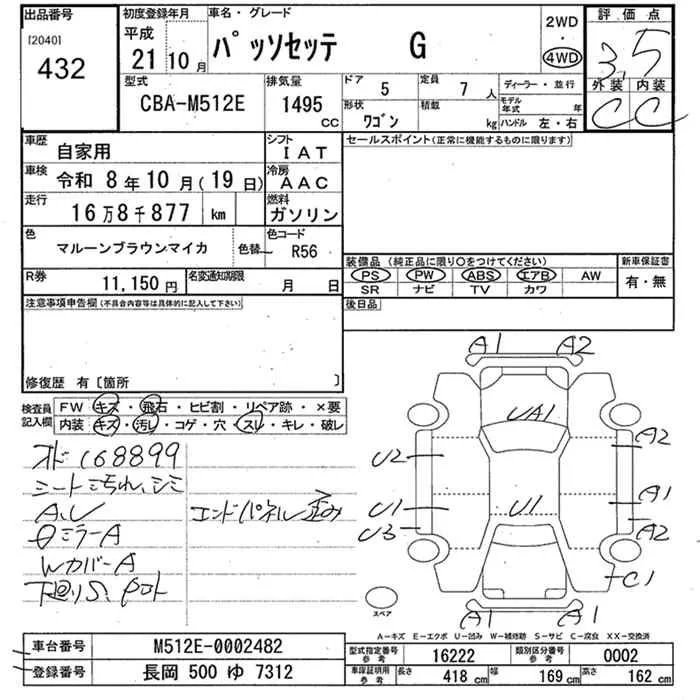 出品番号
[2040]
432
初度登録年月
平成
21 10 月
車名・グレード
パッソセッテ G
2WD
・
4WD
評価点
3.5
外装 内装
C C
型式
CBA-M512E
排気量
1495 CC
ドア
5
定員
7 人
形状
ワゴン
積載
kg
ディーラー・並行
モデル年式 年
ハンドル 左・右
車歴
自家用
シフト
IAT
車検
令和 8年 10 月( 19 日)
冷房
AAC
走行
16万8千877 km
燃料
ガソリン
色
マルーンブラウンマイカ
色替
色コード
R56
R券
11,150 円
名変通知期限
月 日
セールスポイント(正常に機能するものに限ります)
装備品(純正品に限り〇をつけてください)
PS PW ABS エアB AW
SR ナビ TV カワ
新車保証書
有・無
後日品
注意事項申告欄(不具合内容等は具体的に記入して下さい)
修復歴 有〔箇所 〕
検査員記入欄
FW キズ・飛石・ヒビ割・リペア跡・×要
内装 キズ・汚レ・コゲ・穴・スレ・キレ・破レ
オド168899
シート汚れ、シミ
A、U
エンドパネル歪み
ミラーA
WカバーA
下廻りS、
A1 A2
UA1
U2
A2
U1
U1
A1
U3
A2
C1
A1 A1
スペア
A-キズ E-エクボ U-凹み W-補修跡 S-サビ C-腐食 XX-交換済
車台番号
M512E-0002482
登録番号
長岡 500 ゆ 7312
型式指定番号
参考
16222
類別区分番号
参考
0002
車保証明用
参考
長さ
418 cm
幅
169 cm
高さ
162 cm